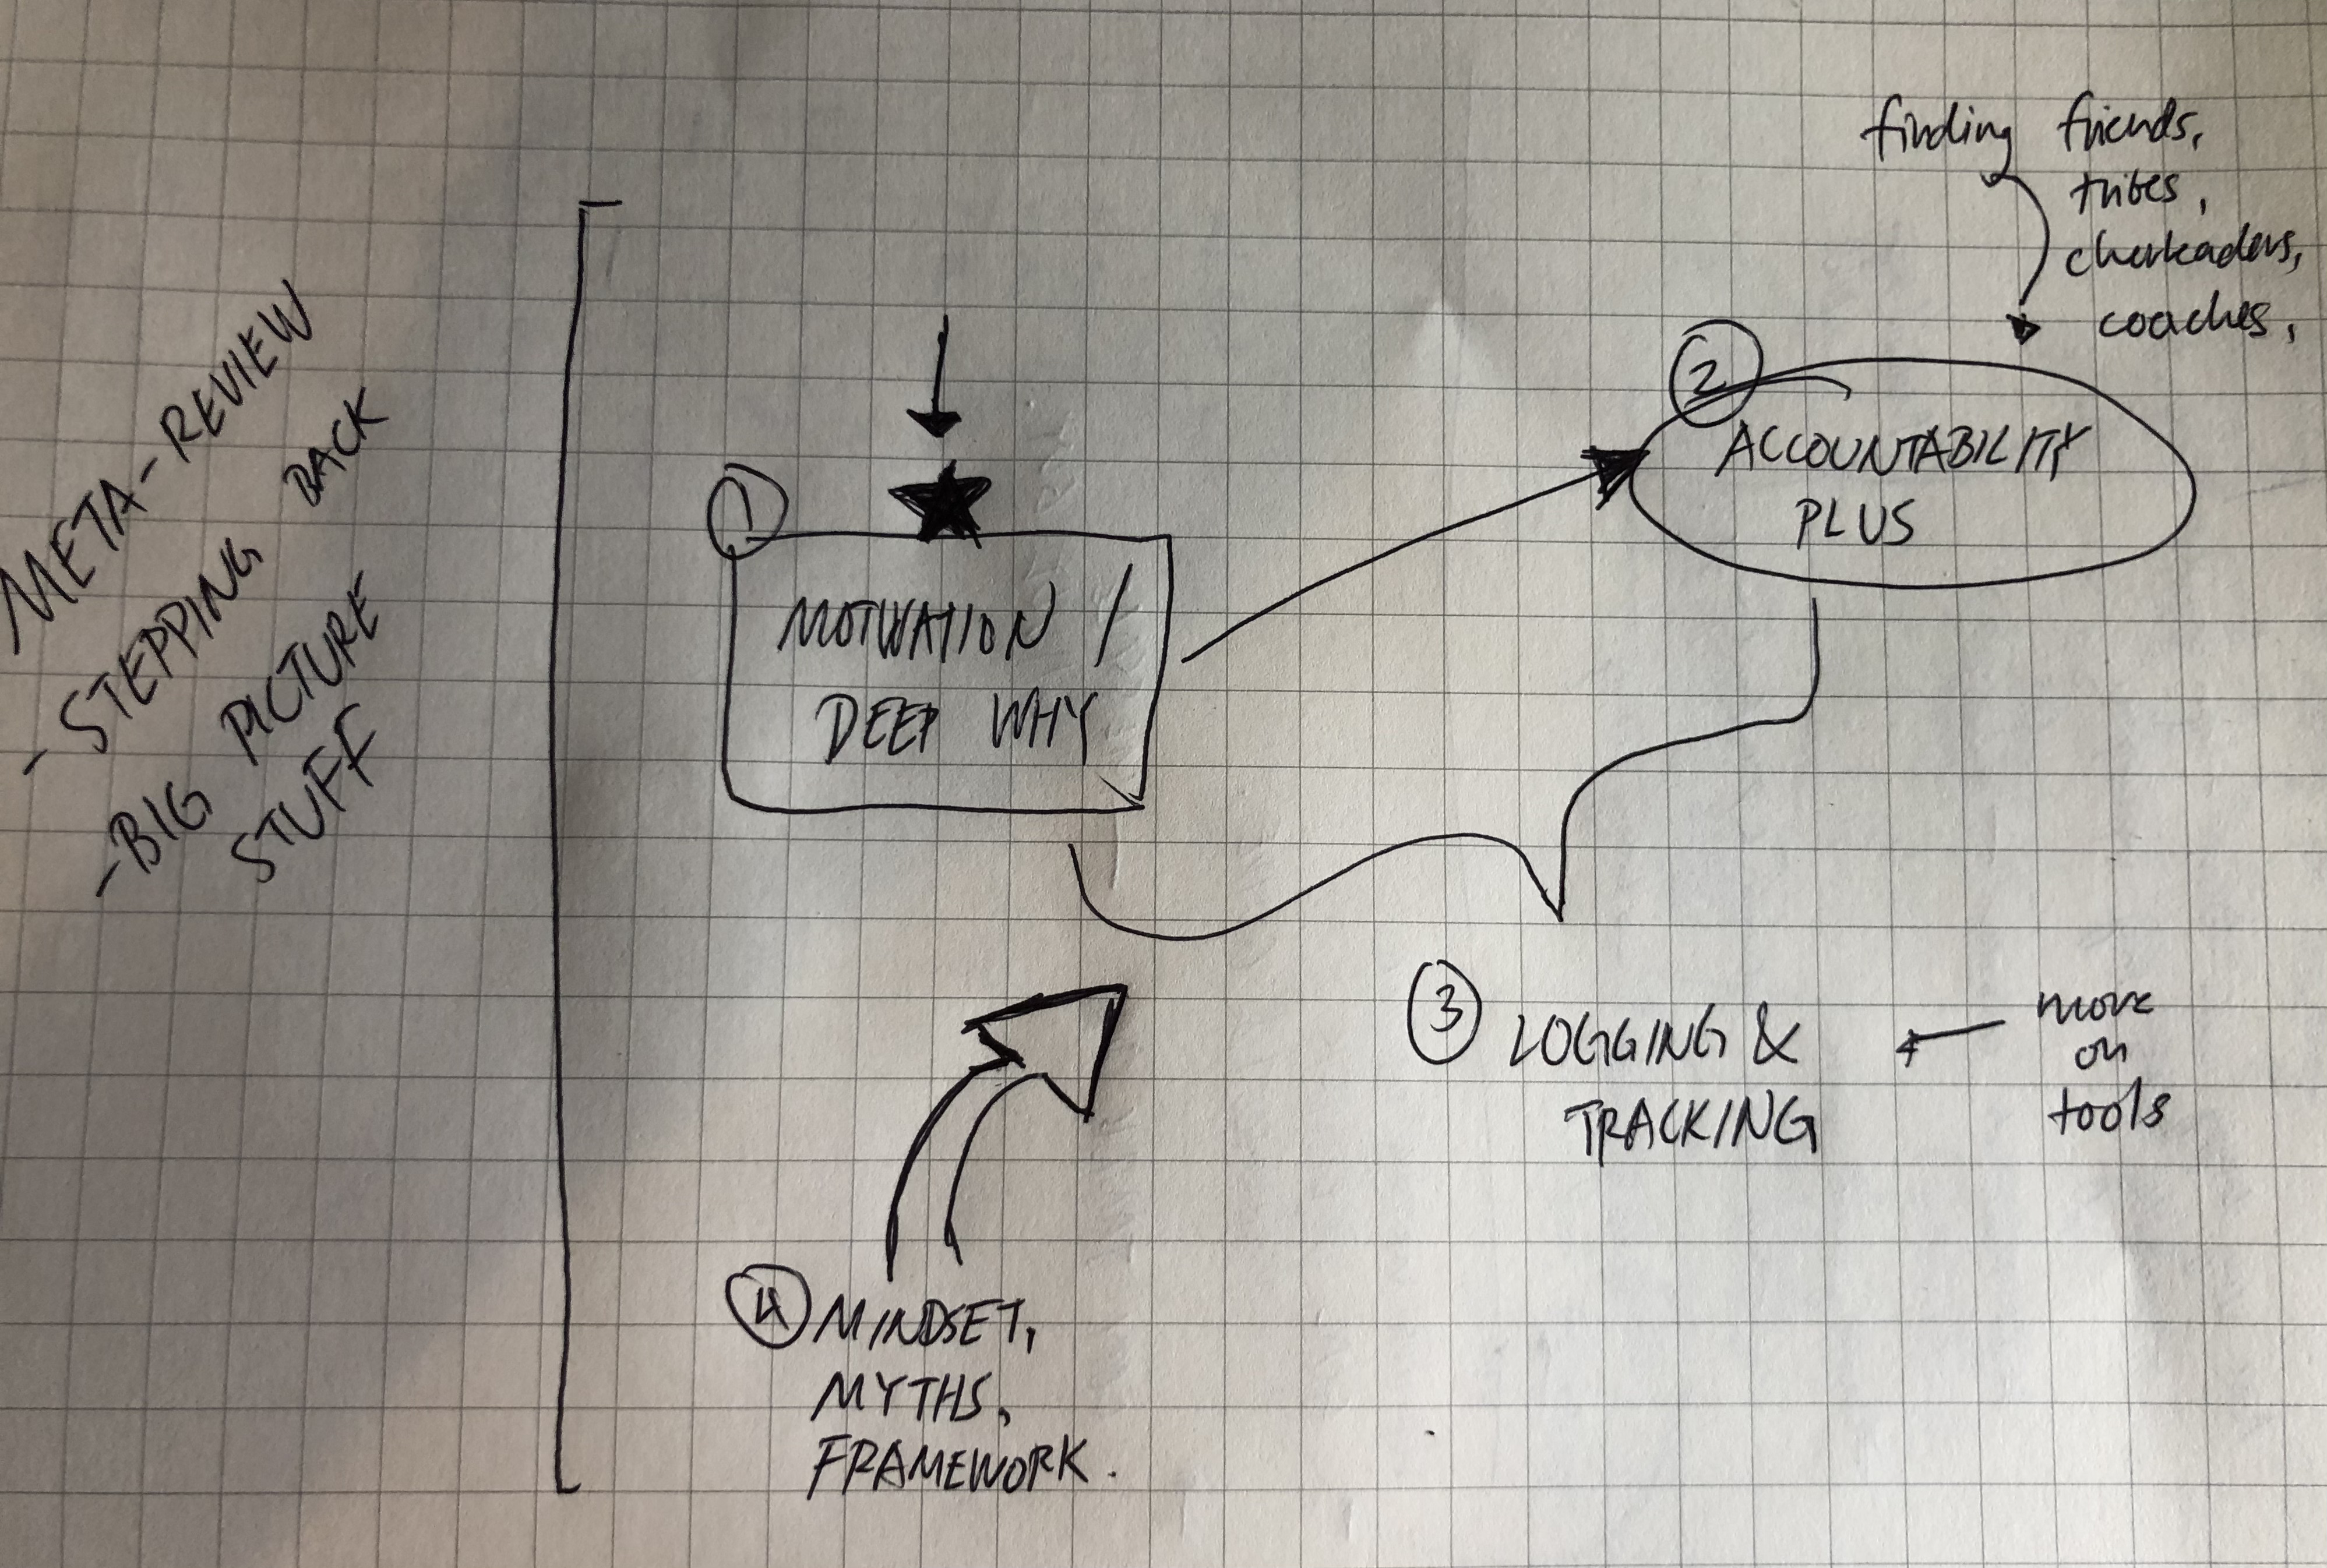 META-REVIEW
- STEPPING BACK
- BIG PICTURE
STUFF
1
MOTIVATION /
DEEP WHY
finding friends,
tribes,
cheerleaders,
coaches,
2
ACCOUNTABILITY
PLUS
3
LOGGING &
TRACKING
more
on
tools
4
MINDSET,
MYTHS,
FRAMEWORK.